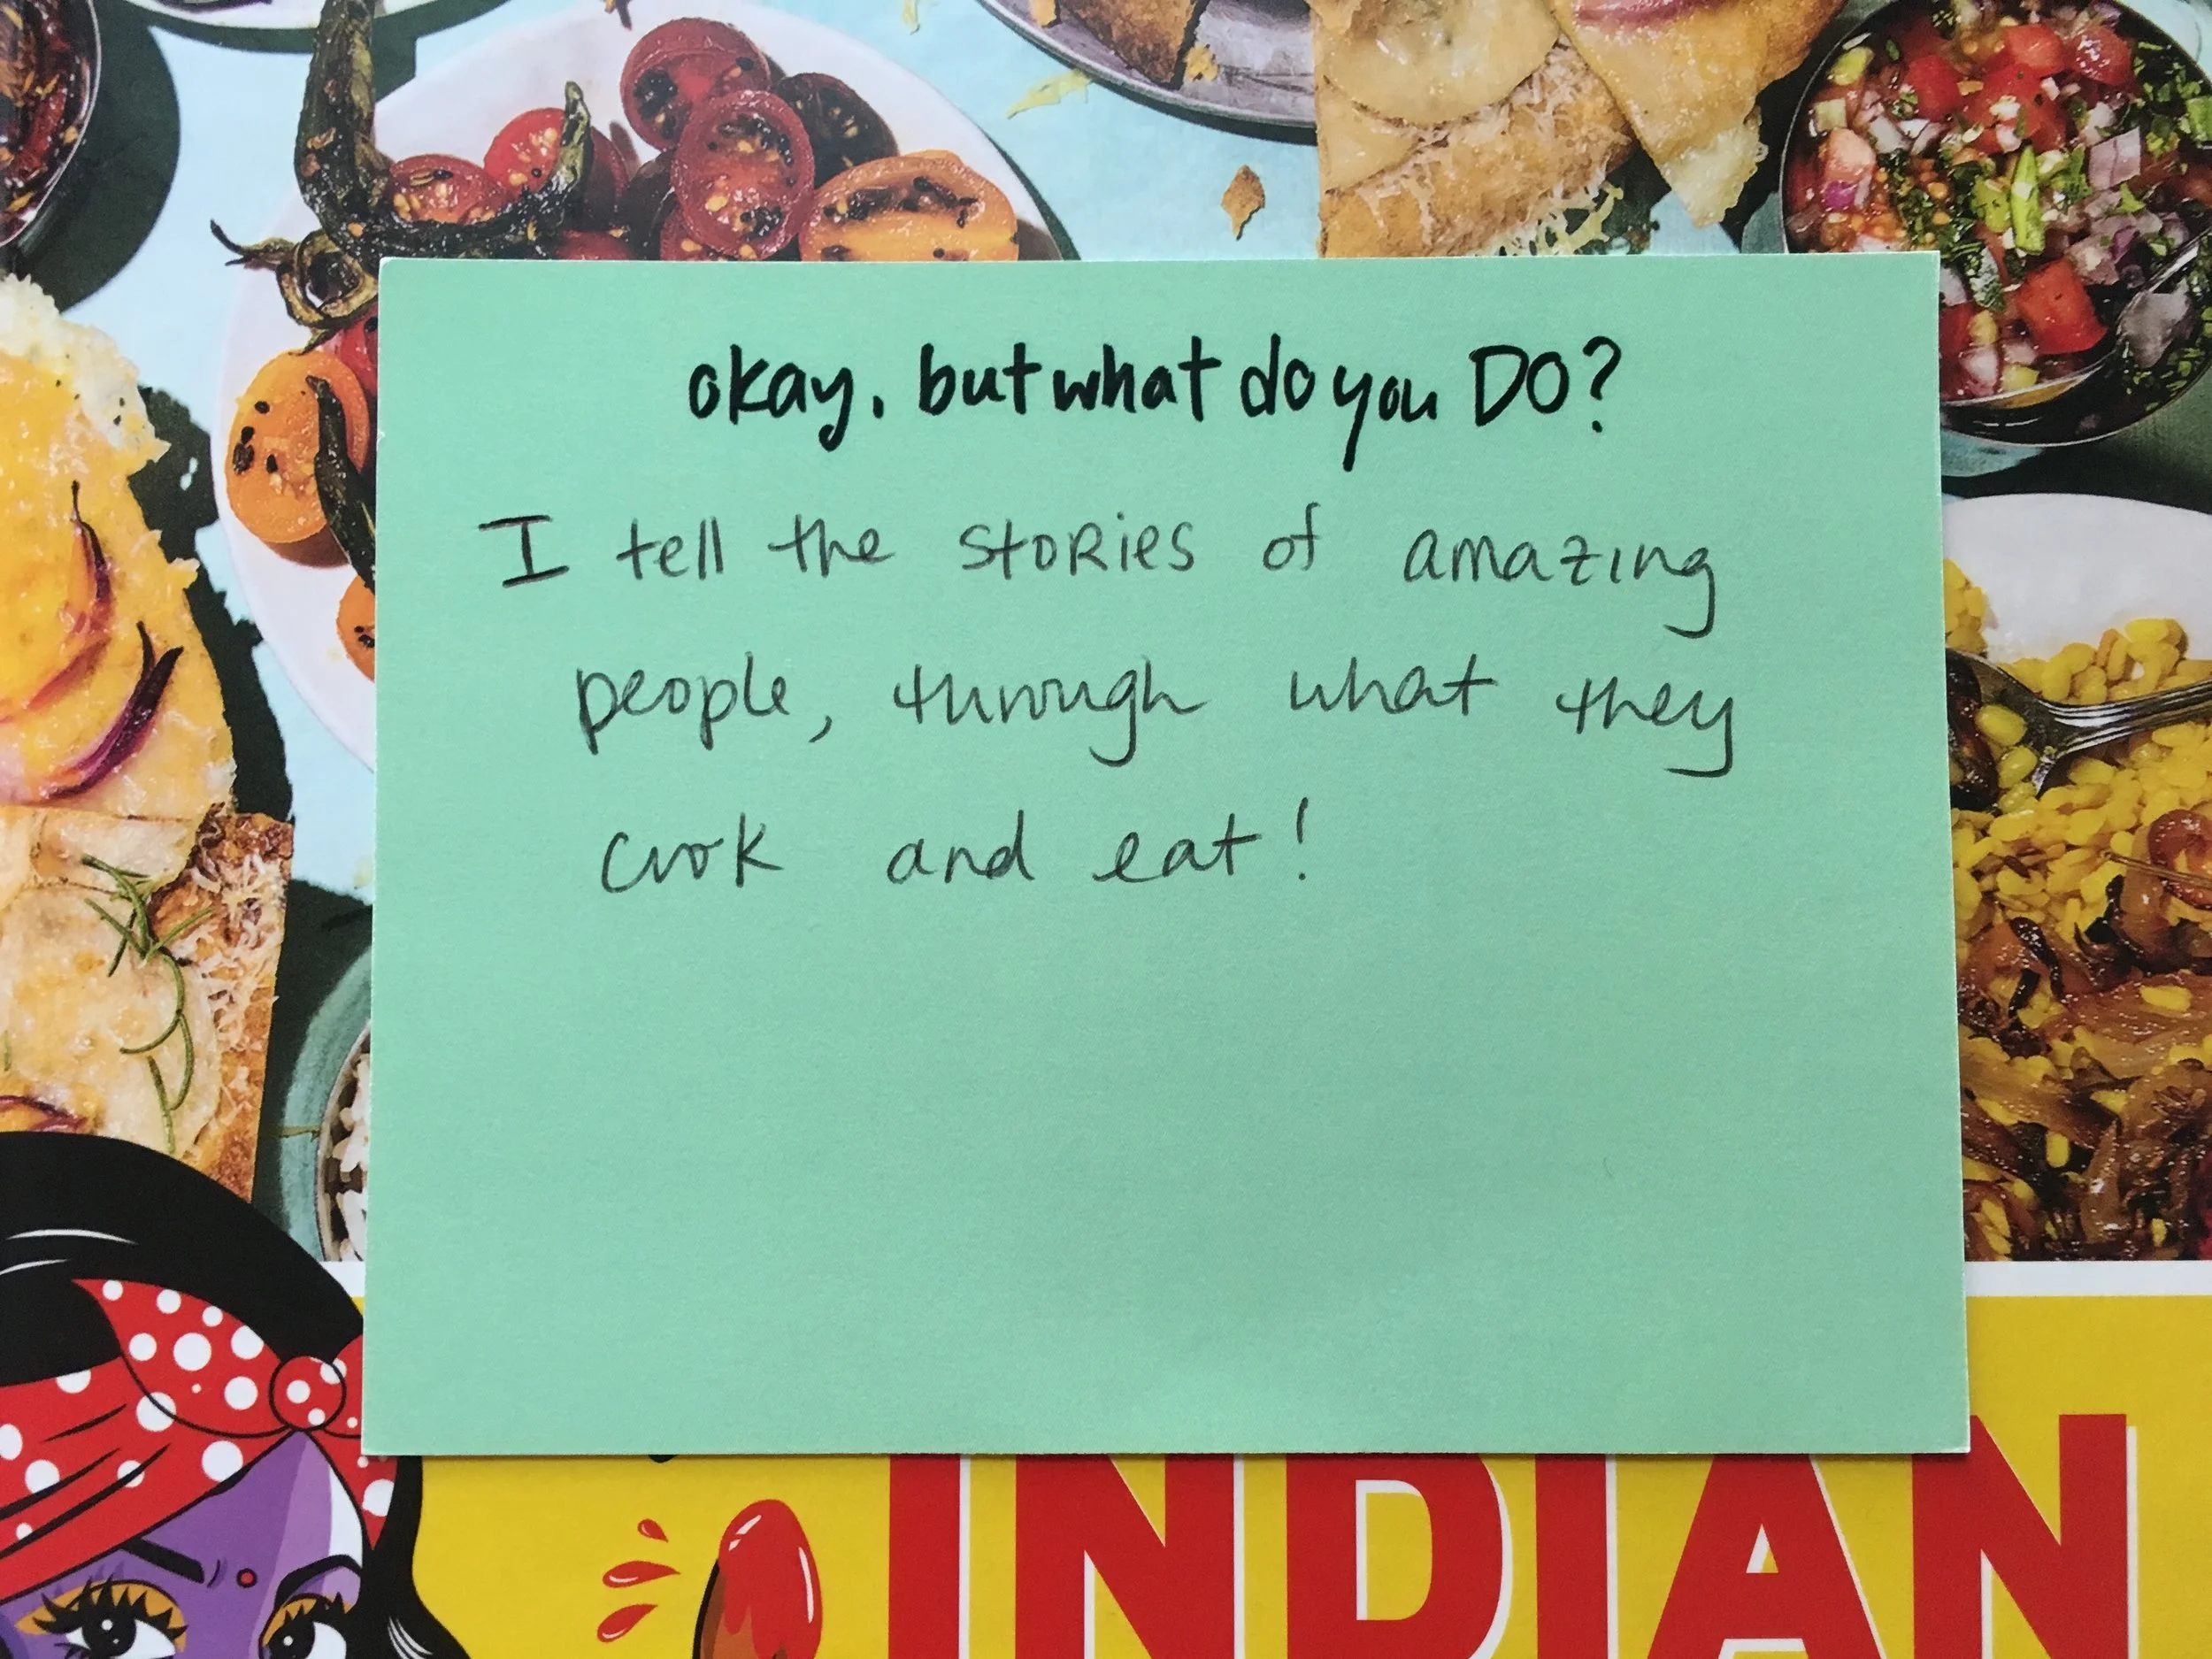 okay. but what do you DO?
I tell the stories of amazing
people, through what they
cook and eat!
INDIAN